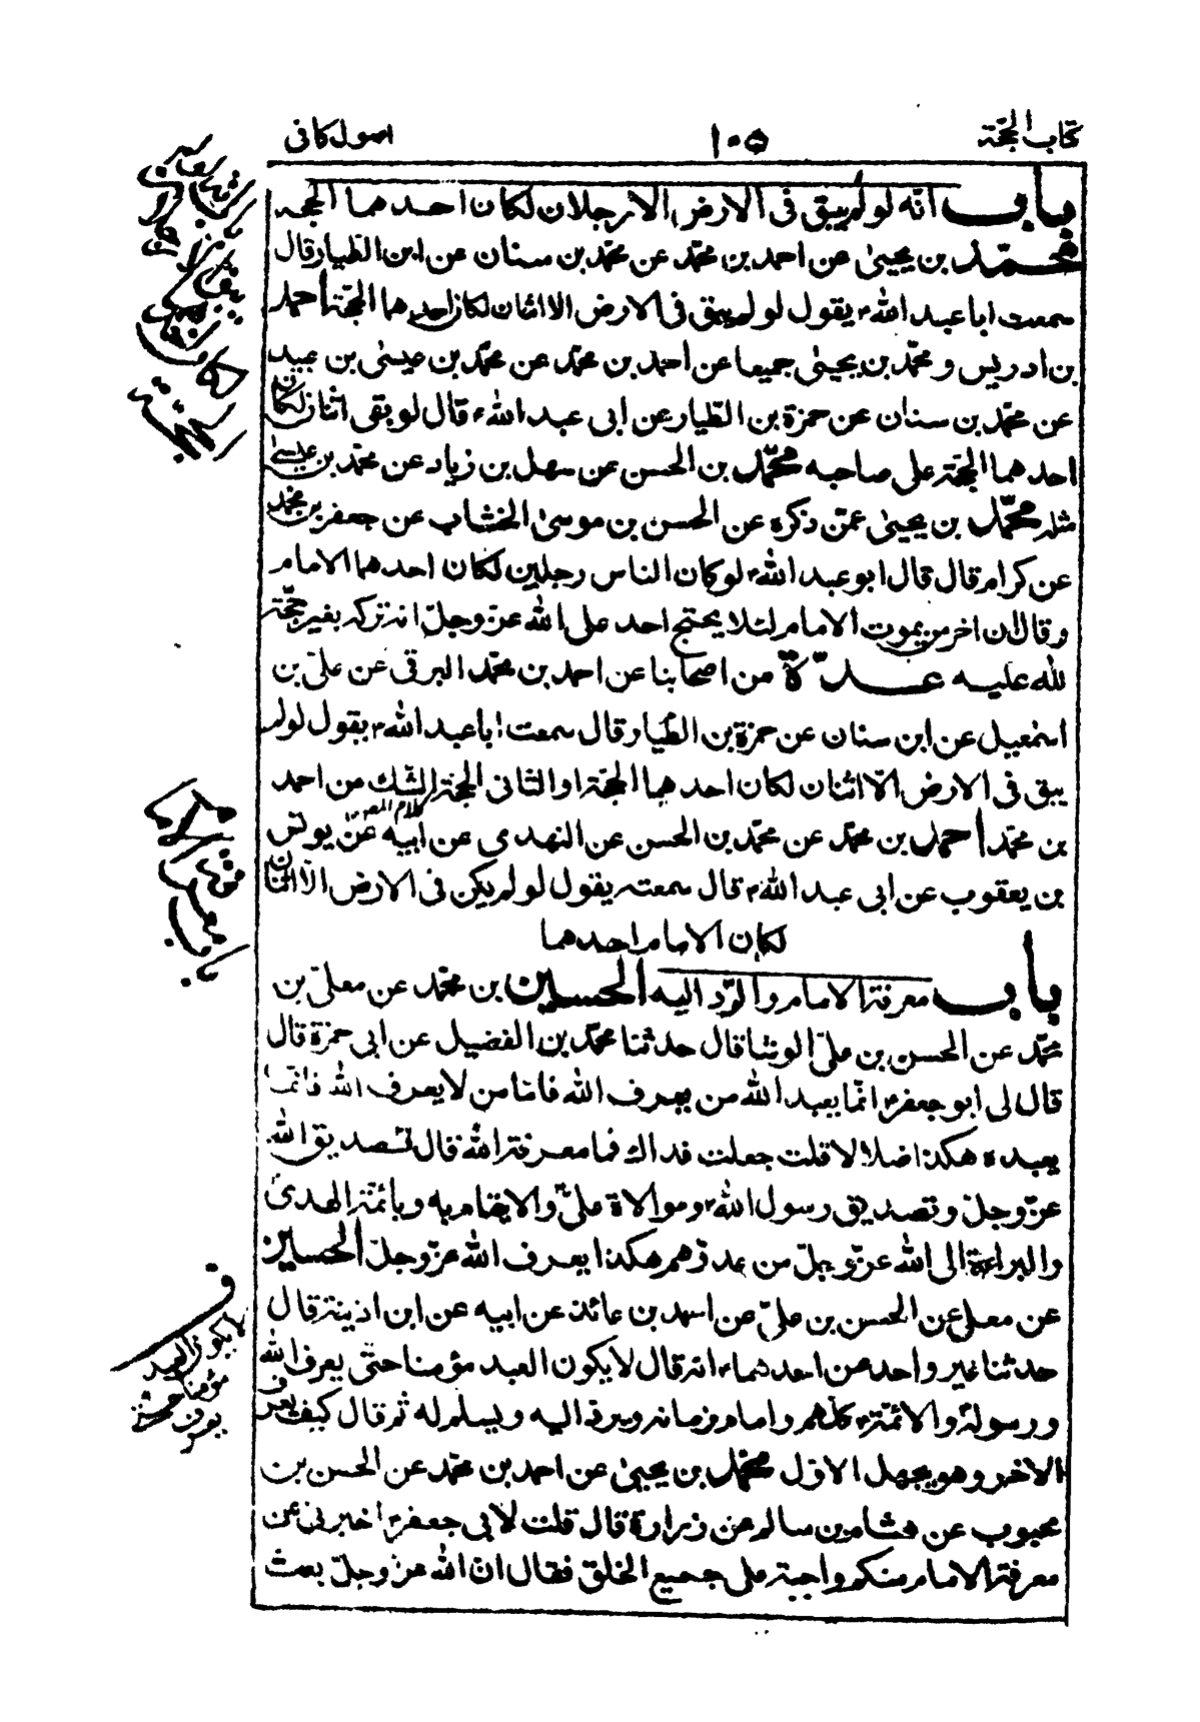 كتاب الحجّة
١٠٥
اصول كافى
باب انّه لو لم يبق فى الارض الا رجلان لكان احدهما الحجة
محمّد بن يحيىٰ عن احمد بن محمّد عن محمّد بن سنان عن ابن الطيار قال
سمعت ابا عبد الله ع يقول لو لم يبق فى الارض الا اثنان لكان احدهما الحجّة احمد
بن ادريس و محمّد بن يحيىٰ جميعا عن احمد بن محمّد عن محمّد بن عيسىٰ بن عبيد
عن محمّد بن سنان عن حمزة بن الطّيار عن ابى عبد الله ع قال لو بقى اثنان لكان
احدهما الحجّة على صاحبه محمّد بن الحسن عن سهل بن زياد عن محمّد بن عيسىٰ
مثله محمّد بن يحيىٰ عمّن ذكره عن الحسن بن موسىٰ الخشاب عن جعفر بن محمّد
عن كرام قال قال ابو عبد الله ع لو كان الناس رجلين لكان احدهما الامام
و قال ان اخر من يموت الامام لئلا يحتج احد على الله عزّ وجلّ انه تركه بغير حجّة
لله عليه عدّة من اصحابنا عن احمد بن محمّد البرقى عن علىّ بن
اسمعيل عن ابن سنان عن حمزة بن الطّيار قال سمعت ابا عبد الله ع يقول لو لم
يبق فى الارض الّا اثنان لكان احدهما الحجّة او الثانى الحجّة الشّك من احمد
كلام المص
بن محمّد احمد بن محمّد عن محمّد بن الحسن عن النهدى عن ابيه عن يونس
بن يعقوب عن ابى عبد الله ع قال سمعته يقول لو لم يكن فى الارض الّا اثنان
لكان الامام احدهما
باب معرفة الامام والرّد اليه الحسين بن محمّد عن معلّى بن
محمّد عن الحسن بن علىّ الوشا قال حدثنا محمّد بن الفضيل عن ابى حمزة قال
قال لى ابو جعفر ع انّما يعبد الله من يعرف الله فامّا من لا يعرف الله فانّما
يعبده هكذا ضلالا قلت جعلت فداك فما معرفة الله قال تصديق الله
عزّ وجلّ وتصديق رسول الله ص وموالاة علىّ ع والايتمام به وبائمّة الهدىٰ
والبراءة الى الله عزّ وجلّ من عدوّهم هكذا يعرف الله عزّ وجلّ الحسين
عن معلى عن الحسن بن علىّ عن احمد بن عائذ عن ابيه عن ابن اذينة قال
حدثنا غير واحد عن احدهما ع انه قال لا يكون العبد مؤمنا حتّى يعرف الله
ورسوله والائمّة ع كلّهم وامام زمانه ويردّ اليه ويسلم له ثم قال كيف يعرف
الاخر وهو يجهل الاوّل محمّد بن يحيىٰ عن احمد بن محمّد عن الحسن بن
محبوب عن هشام بن سالم عن زرارة قال قلت لابى جعفر ع اخبرنى عن
معرفة الامام منكم واجبة على جميع الخلق فقال انّ الله عزّ وجلّ بعث
باب معرفة
لا يكون العبد
مؤمنا حتى
يعرف